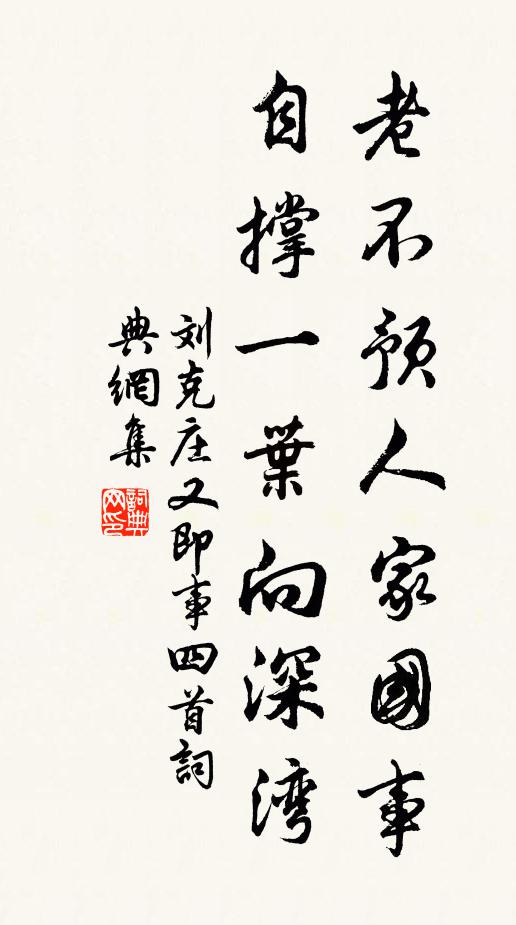 老不預人家國事
自撐一葉向深湾
刘克庄又即事四首詞
典網集
詞典網印